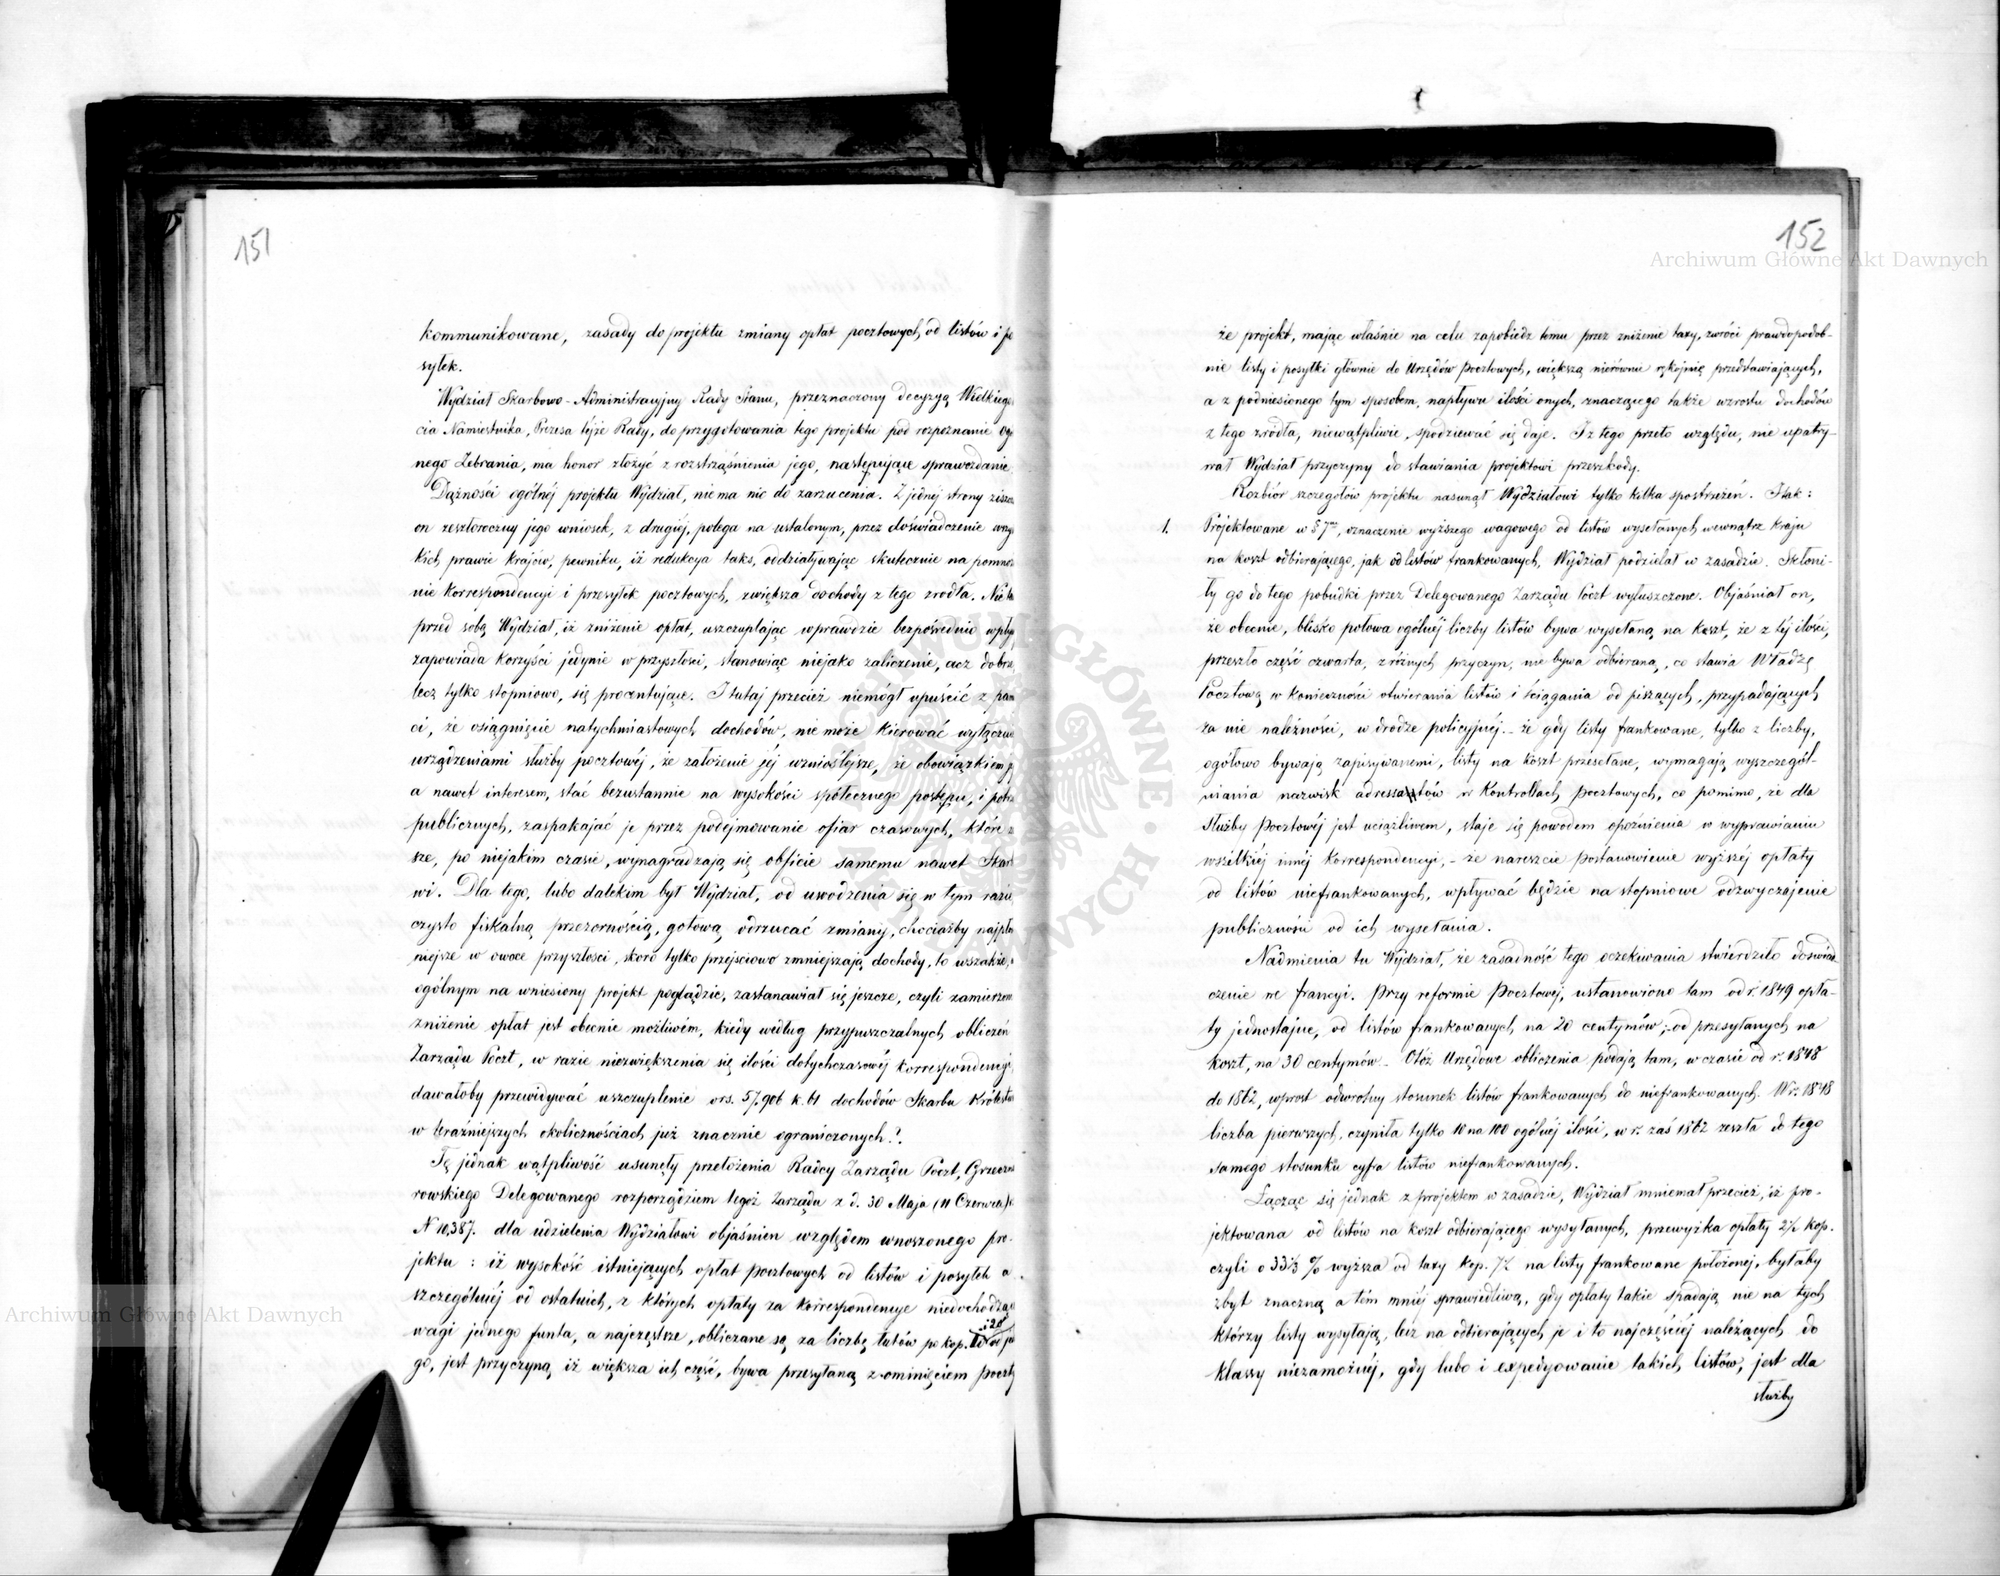 151
kommunikowane, zasady do projektu zmiany opłat pocztowych, od listów i po
syłek.
Wydział Skarbowo-Administracyjny Rady Stanu, przeznaczony decyzyą Wielkiego
cia Namiestnika, Prezesa tejże Rady, do przygotowania tego projektu pod rozpoznanie Ogó
nego Zebrania, ma honor złożyć z roztrząśnienia jego, następujące sprawozdanie.
Dążności ogólnéj projektu Wydział, nie ma nic do zarzucenia. Z jednéj strony ziszcza
on zeszłoroczny jego wniosek, z drugiéj, polega na ustalonym, przez doświadczenie wszy
kich prawie krajów, pewniku, iż redukcya taks, oddziaływając skutecznie na pomnoże
nie korrespondencyi i przesyłek pocztowych, zwiększa dochody z tego zrodła. Nie ta
przed sobą Wydział, iż zniżenie opłat, uszczuplając wprawdzie bezpośrednio wpływ
zapowiada korzyści jedynie w przyszłości, stanowiąc niejako zaliczenie, acz dobrze
lecz tylko stopniowo, się procentujące. I tutaj przecież niemógł upuścić z pam
ci, że osiągnięcie natychmiastowych dochodów, nie może kierować wyłączni
urządzeniami służby pocztowéj, że założenie jéj wznioślejsze, że obowiązkiem j
a nawet interesem, stać bezustannie na wysokości spółecznego postępu, i potrz
publicznych, zaspakajać je przez podejmowanie ofiar czasowych, które z
sze, po niejakim czasie, wynagradzają się obficie samemu nawet Skar
wi. Dla tego, lubo dalekim był Wydział, od uwodzenia się w tym razie
czysto fiskalną przezornością, gotową odrzucać zmiany, chociażby najpło
niejsze w owoce przyszłości, skoro tylko przejściowo zmniejszają dochody, to wszakże,
ogólnym na wniesiony projekt poglądzie, zastanawiał się jeszcze, czyli zamierzone
zniżenie opłat jest obecnie możliwém, kiedy według przypuszczalnych obliczeń
Zarządu Poczt, w razie niezwiększenia się ilości dotychczasowéj korrespondencyi
dawałoby przewidywać uszczuplenie o rs. 57,906 k. 61 dochodów Skarbu Królestw
w teraźniejszych okolicznościach już znacznie ograniczonych?.
Tę jednak wątpliwość usunęły przełożenia Radcy Zarządu Poczt,
rowskiego Delegowanego rozporządzeniem tegoż Zarządu z d. 30 Maja (11 Czerwca)
N 10,387. dla udzielenia Wydziałowi objaśnień względem wnoszonego pro-
jektu: iż wysokość istniejących opłat pocztowych od listów i posyłek a
szczególniéj od ostatnich, z których opłaty za korrespondencye niedochodzą
wagi jednego funta, a najczęstsze, obliczane są za liczbę łutów po kop. 10 i 20
go, jest przyczyną iż większa ich część, bywa przesyłaną z ominięciem poczty
152
że projekt, mając właśnie na celu zapobiedz temu przez zniżenie taxy, zwróci prawdopodob-
nie listy i posyłki głównie do Urzędów Pocztowych, większą nierównie rękojmię przedstawiających,
a z podniesionego tym sposobem, napływu ilości onych, znaczącego także wzrostu dochodów
z tego zrodła, niewątpliwie, spodziewać się daje. I z tego przeto względu, nie upatry-
wał Wydział przyczyny do stawiania projektowi przeszkody.
Rozbiór szczegółów projektu nasunął Wydziałowi tylko kilka spostrzeżeń. I tak:
1. Projektowane w § 7ym, oznaczenie wyższego wagowego od listów wysełanych wewnątrz kraju
na koszt odbierającego, jak od listów frankowanych, Wydział podzielał w zasadzie. Skłoni-
ły go do tego pobudki przez Delegowanego Zarządu Poczt wyłuszczone. Objaśniał on,
że obecnie, blisko połowa ogólnéj liczby listów bywa wysełaną na koszt, że z téj ilości,
przeszło część czwarta, z różnych przyczyn, nie bywa odbieraną, co stawia Władzę
Pocztową w konieczności otwierania listów i ściągania od piszących, przypadających
za nie należności, w drodze policyjnéj. – że gdy listy frankowane, tylko z liczby,
ogółowo bywają zapisywanemi, listy na koszt przesełane, wymagają wyszczegól-
niania nazwisk adressantów w Kontrollach Pocztowych, co pomimo, że dla
Służby Pocztowéj jest uciążliwem, staje się powodem opóźnienia w wyprawianiu
wszelkiéj innéj korrespondencyi, – że nareszcie postanowienie wyższéj opłaty
od listów niefrankowanych, wpływać będzie na stopniowe odzwyczajenie
publiczności od ich wysełania.
Nadmienia tu Wydział, że zasadność tego oczekiwania stwierdziło doświad
czenie we francyi. Przy reformie Pocztowej, ustanowiono tam od r. 1849 opła-
ty jednostajne, od listów frankowanych na 20 centymów; – od przesyłanych na
koszt, na 30 centymów. – Otóż Urzędowe obliczenia podają tam, w czasie od r. 1848
do 1862, wprost odwrotny stosunek listów frankowanych do niefrankowanych. W r. 1848
liczba pierwszych, czyniła tylko 10 na 100 ogólnéj ilości, w r. zaś 1862 zeszła do tego
samego stosunku cyfra listów niefrankowanych.
Łącząc się jednak z projektem w zasadzie, Wydział mniemał przecież, iż pro-
jektowana od listów na koszt odbierającego wysyłanych, przewyżka opłaty 2½ kop.
czyli o 33⅓ % wyższa od taxy kop. 7½ na listy frankowane położonej, byłaby
zbyt znaczną a tém mniéj sprawiedliwą, gdy opłaty takie spadają nie na tych
którzy listy wysyłają, lecz na odbierających je i to najczęściéj należących do
klassy niezamożnéj, gdy lubo i expedyowanie takich listów, jest dla
służby
Archiwum Główne Akt Dawnych
Archiwum Główne Akt Dawnych